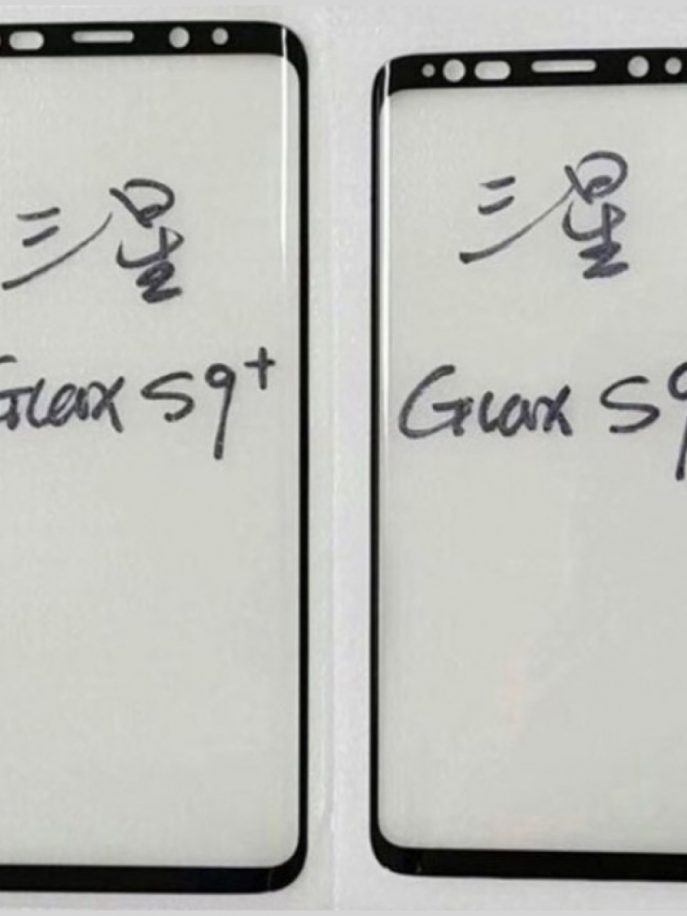 三星
Glax S9+
三星
Glax S9